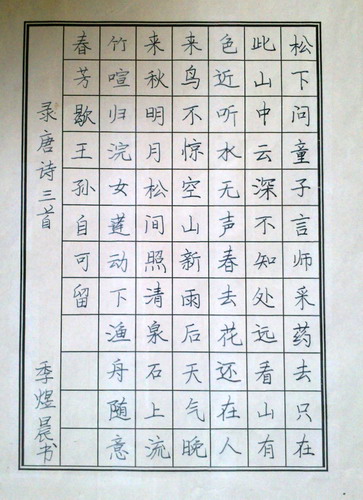 松下问童子言师采药去只在
此山中云深不知处远看山有
色近听水无声春去花还在人
来鸟不惊空山新雨后天气晚
来秋明月松间照清泉石上流
竹喧归浣女莲动下渔舟随意
春芳歇王孙自可留
录唐诗三首
季煜晨书